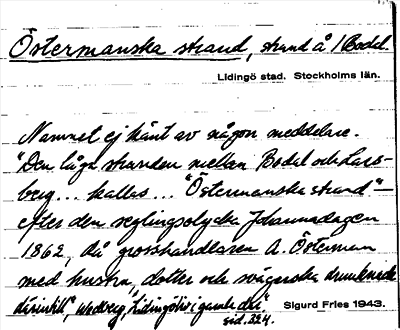 Östermanska strand, strand å 1 Bodal.
Lidingö stad. Stockholms län.
Namnet ej känt av någon meddelare.
"Den låga stranden mellan Bodal och Lars-
berg... kallas... "Östermanska strand" –
efter den seglingsolycka Johannadagen
1862, då grosshandlaren A. Österman
med hustru, dotter och svägerska drunknade
därintill", Wedberg, "Lidingöliv i gamla da'r"
sid. 324.
Sigurd Fries 1943.